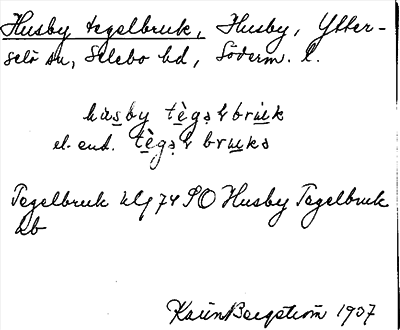 Husby tegelbruk, Husby, Ytter-
selö sn, Selebo hd, Söderm. l.
hùsby tègəlbrùk
el. end. tègəlbrukə
Tegelbruk klg 74 SO Husby Tegelbruk
Karin Bergström 1907